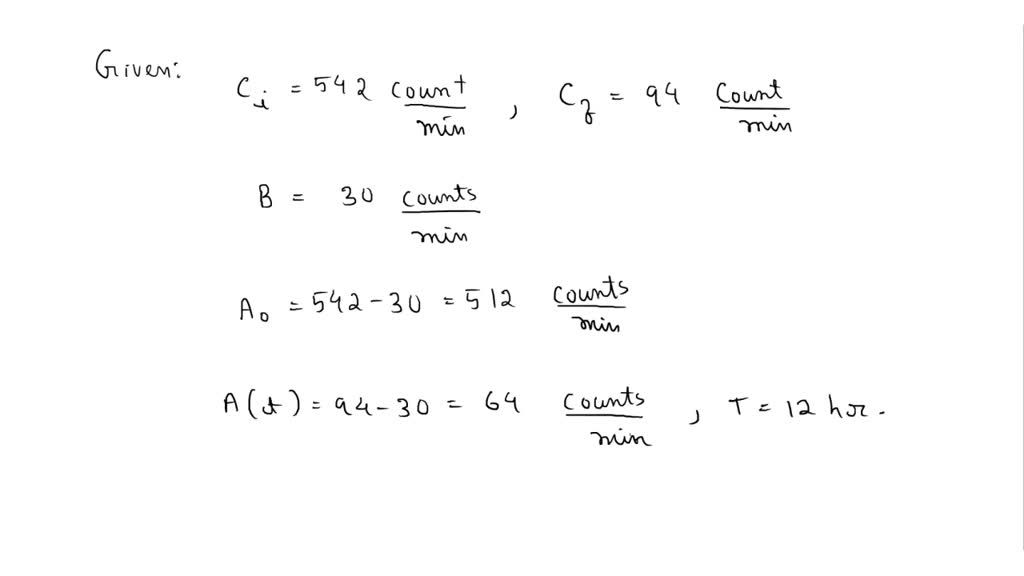 Given: C_i = 542 count/min , C_f = 94 count/min
B = 30 counts/min
A_0 = 542 - 30 = 512 counts/min
A(t) = 94 - 30 = 64 counts/min , T = 12 hr.